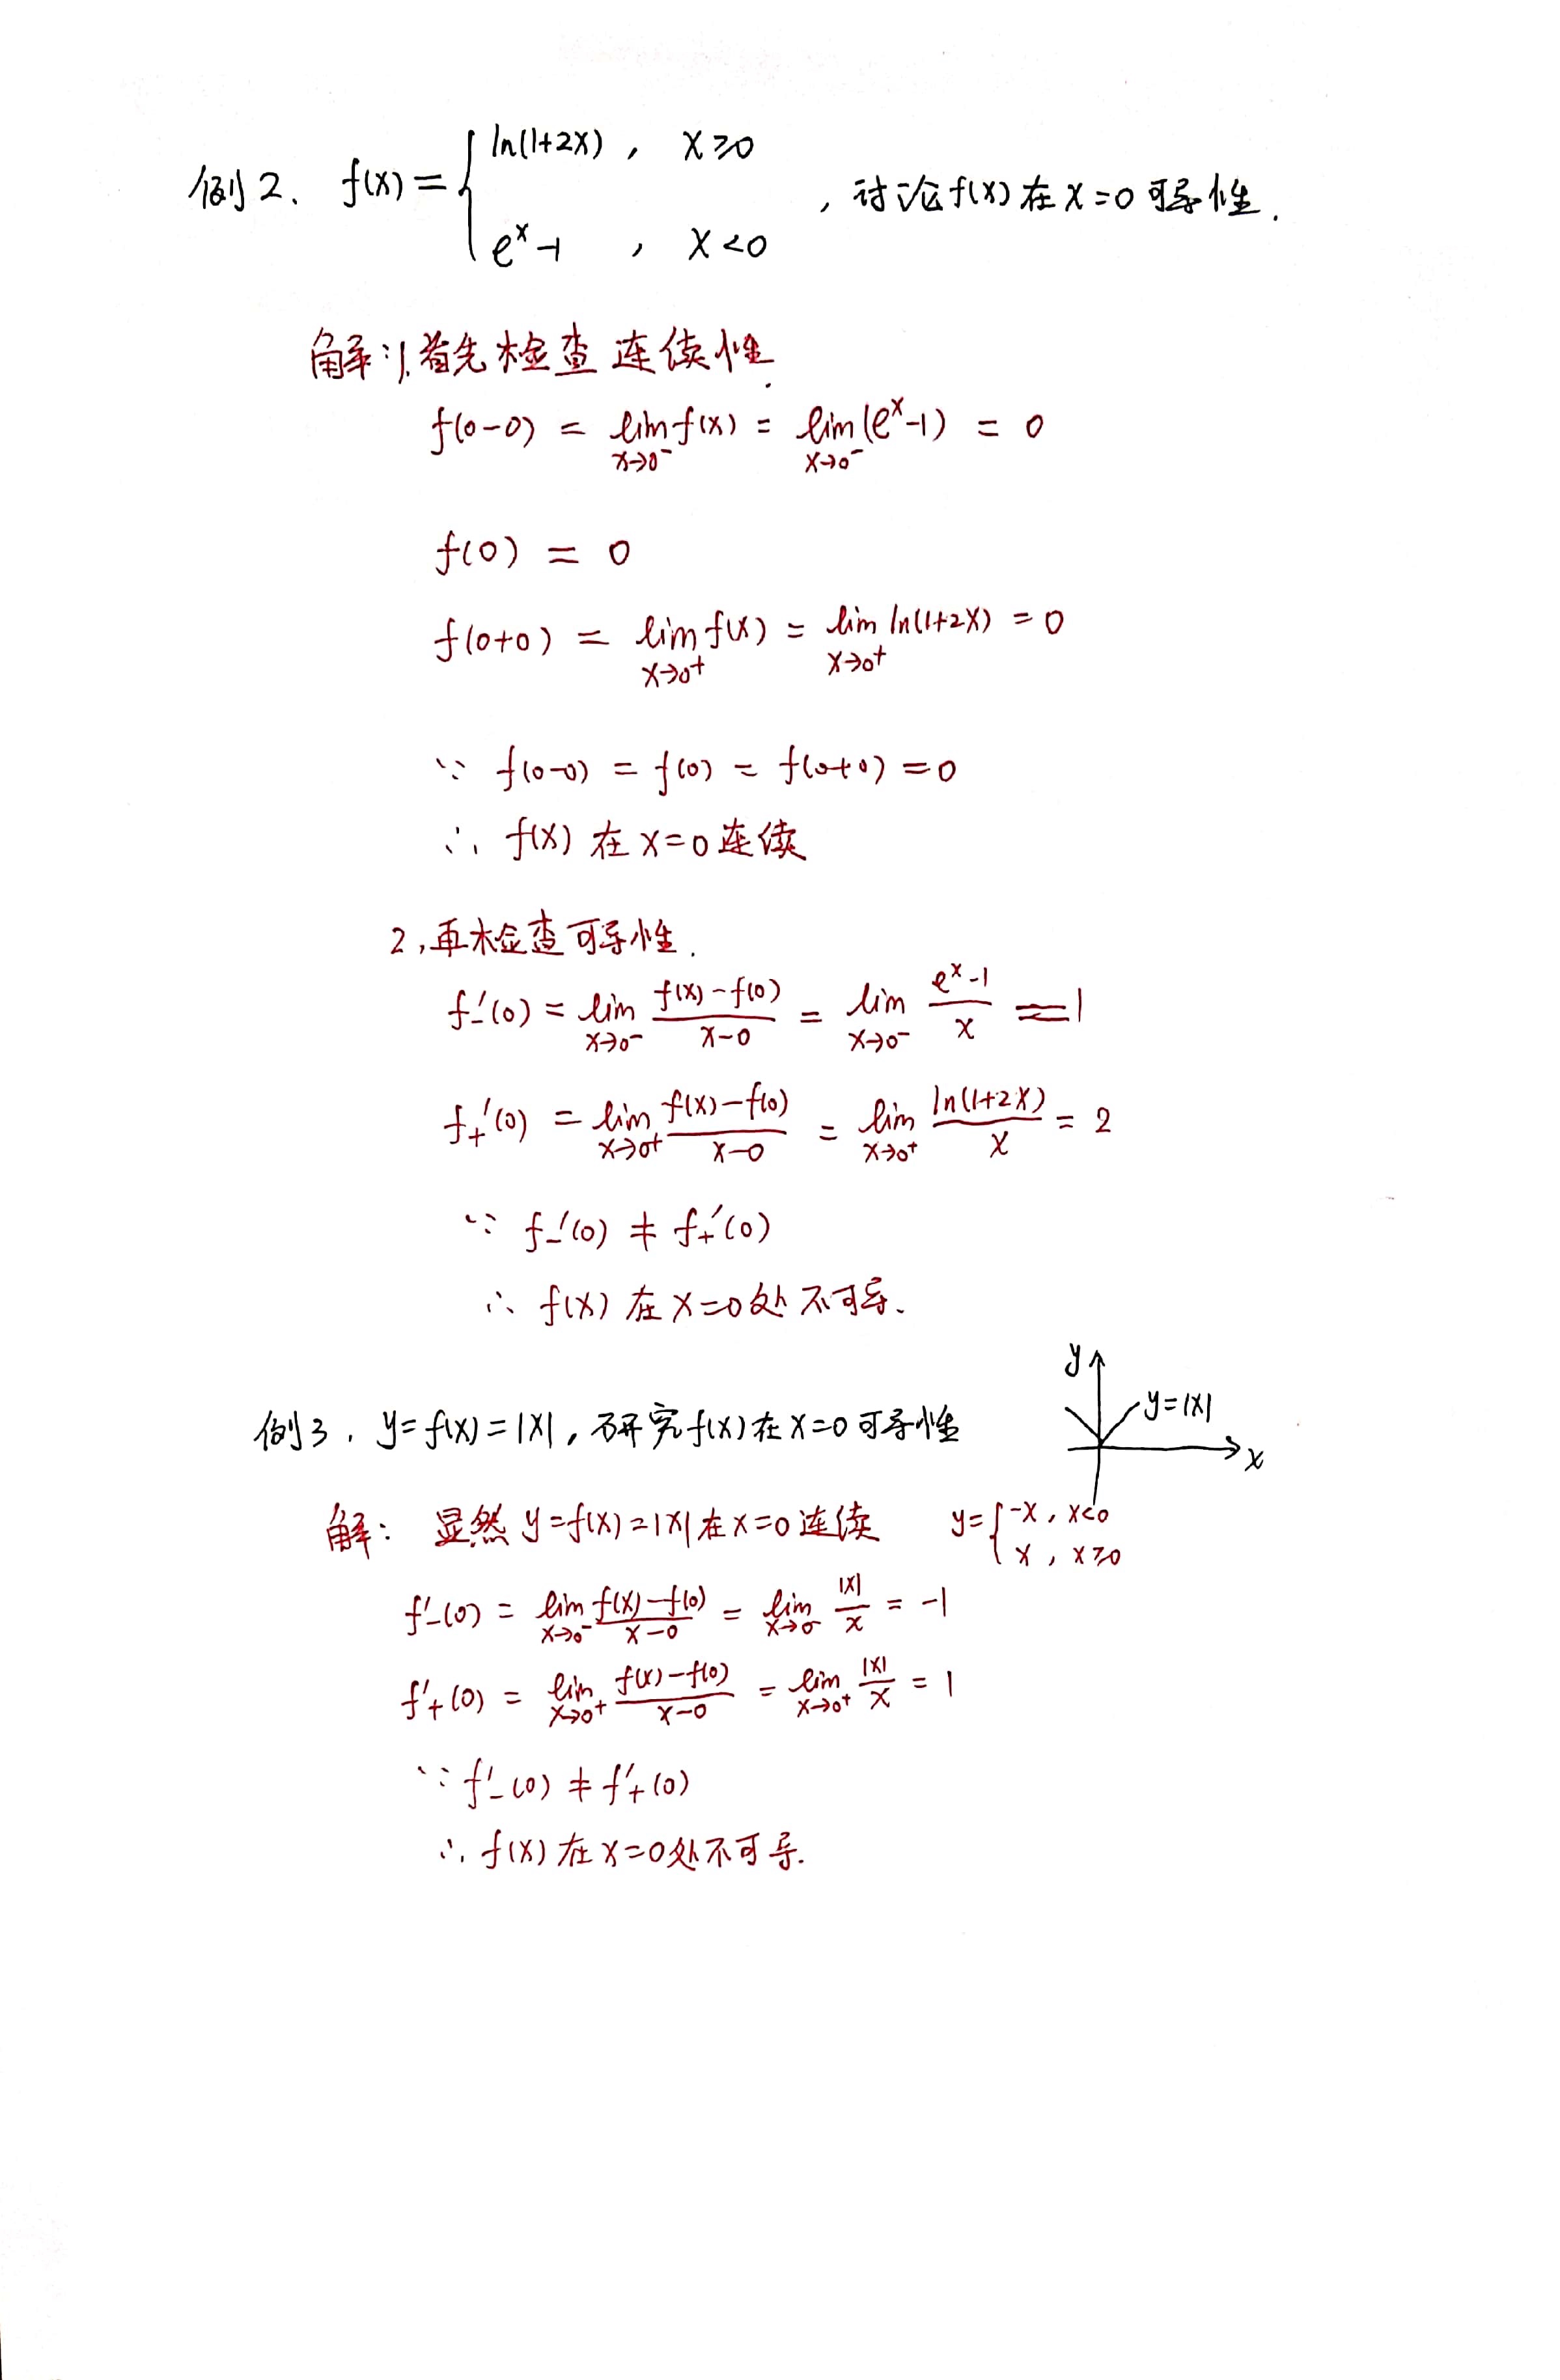 例2、f(x)={ln(1+2x), x≥0
e^x-1, x<0 ,讨论f(x)在x=0可导性.
解:1.首先检查连续性.
f(0-0) = lim_{x→0⁻} f(x) = lim_{x→0⁻} (e^x-1) = 0
f(0) = 0
f(0+0) = lim_{x→0⁺} f(x) = lim_{x→0⁺} ln(1+2x) = 0
∵ f(0-0) = f(0) = f(0+0) = 0
∴ f(x) 在 x=0 连续
2,再检查可导性.
f₋'(0) = lim_{x→0⁻} (f(x)-f(0))/(x-0) = lim_{x→0⁻} (e^x-1)/x = 1
f₊'(0) = lim_{x→0⁺} (f(x)-f(0))/(x-0) = lim_{x→0⁺} ln(1+2x)/x = 2
∵ f₋'(0) ≠ f₊'(0)
∴ f(x) 在 x=0处 不可导.
例3, y=f(x)=|x|,研究f(x)在x=0可导性
y
y=|x|
x
解: 显然 y=f(x)=|x|在x=0连续
y={-x, x<0
x, x≥0
f'₋(0) = lim_{x→0⁻} (f(x)-f(0))/(x-0) = lim_{x→0⁻} |x|/x = -1
f'₊(0) = lim_{x→0⁺} (f(x)-f(0))/(x-0) = lim_{x→0⁺} |x|/x = 1
∵ f'₋(0) ≠ f'₊(0)
∴ f(x) 在 x=0处不可导.